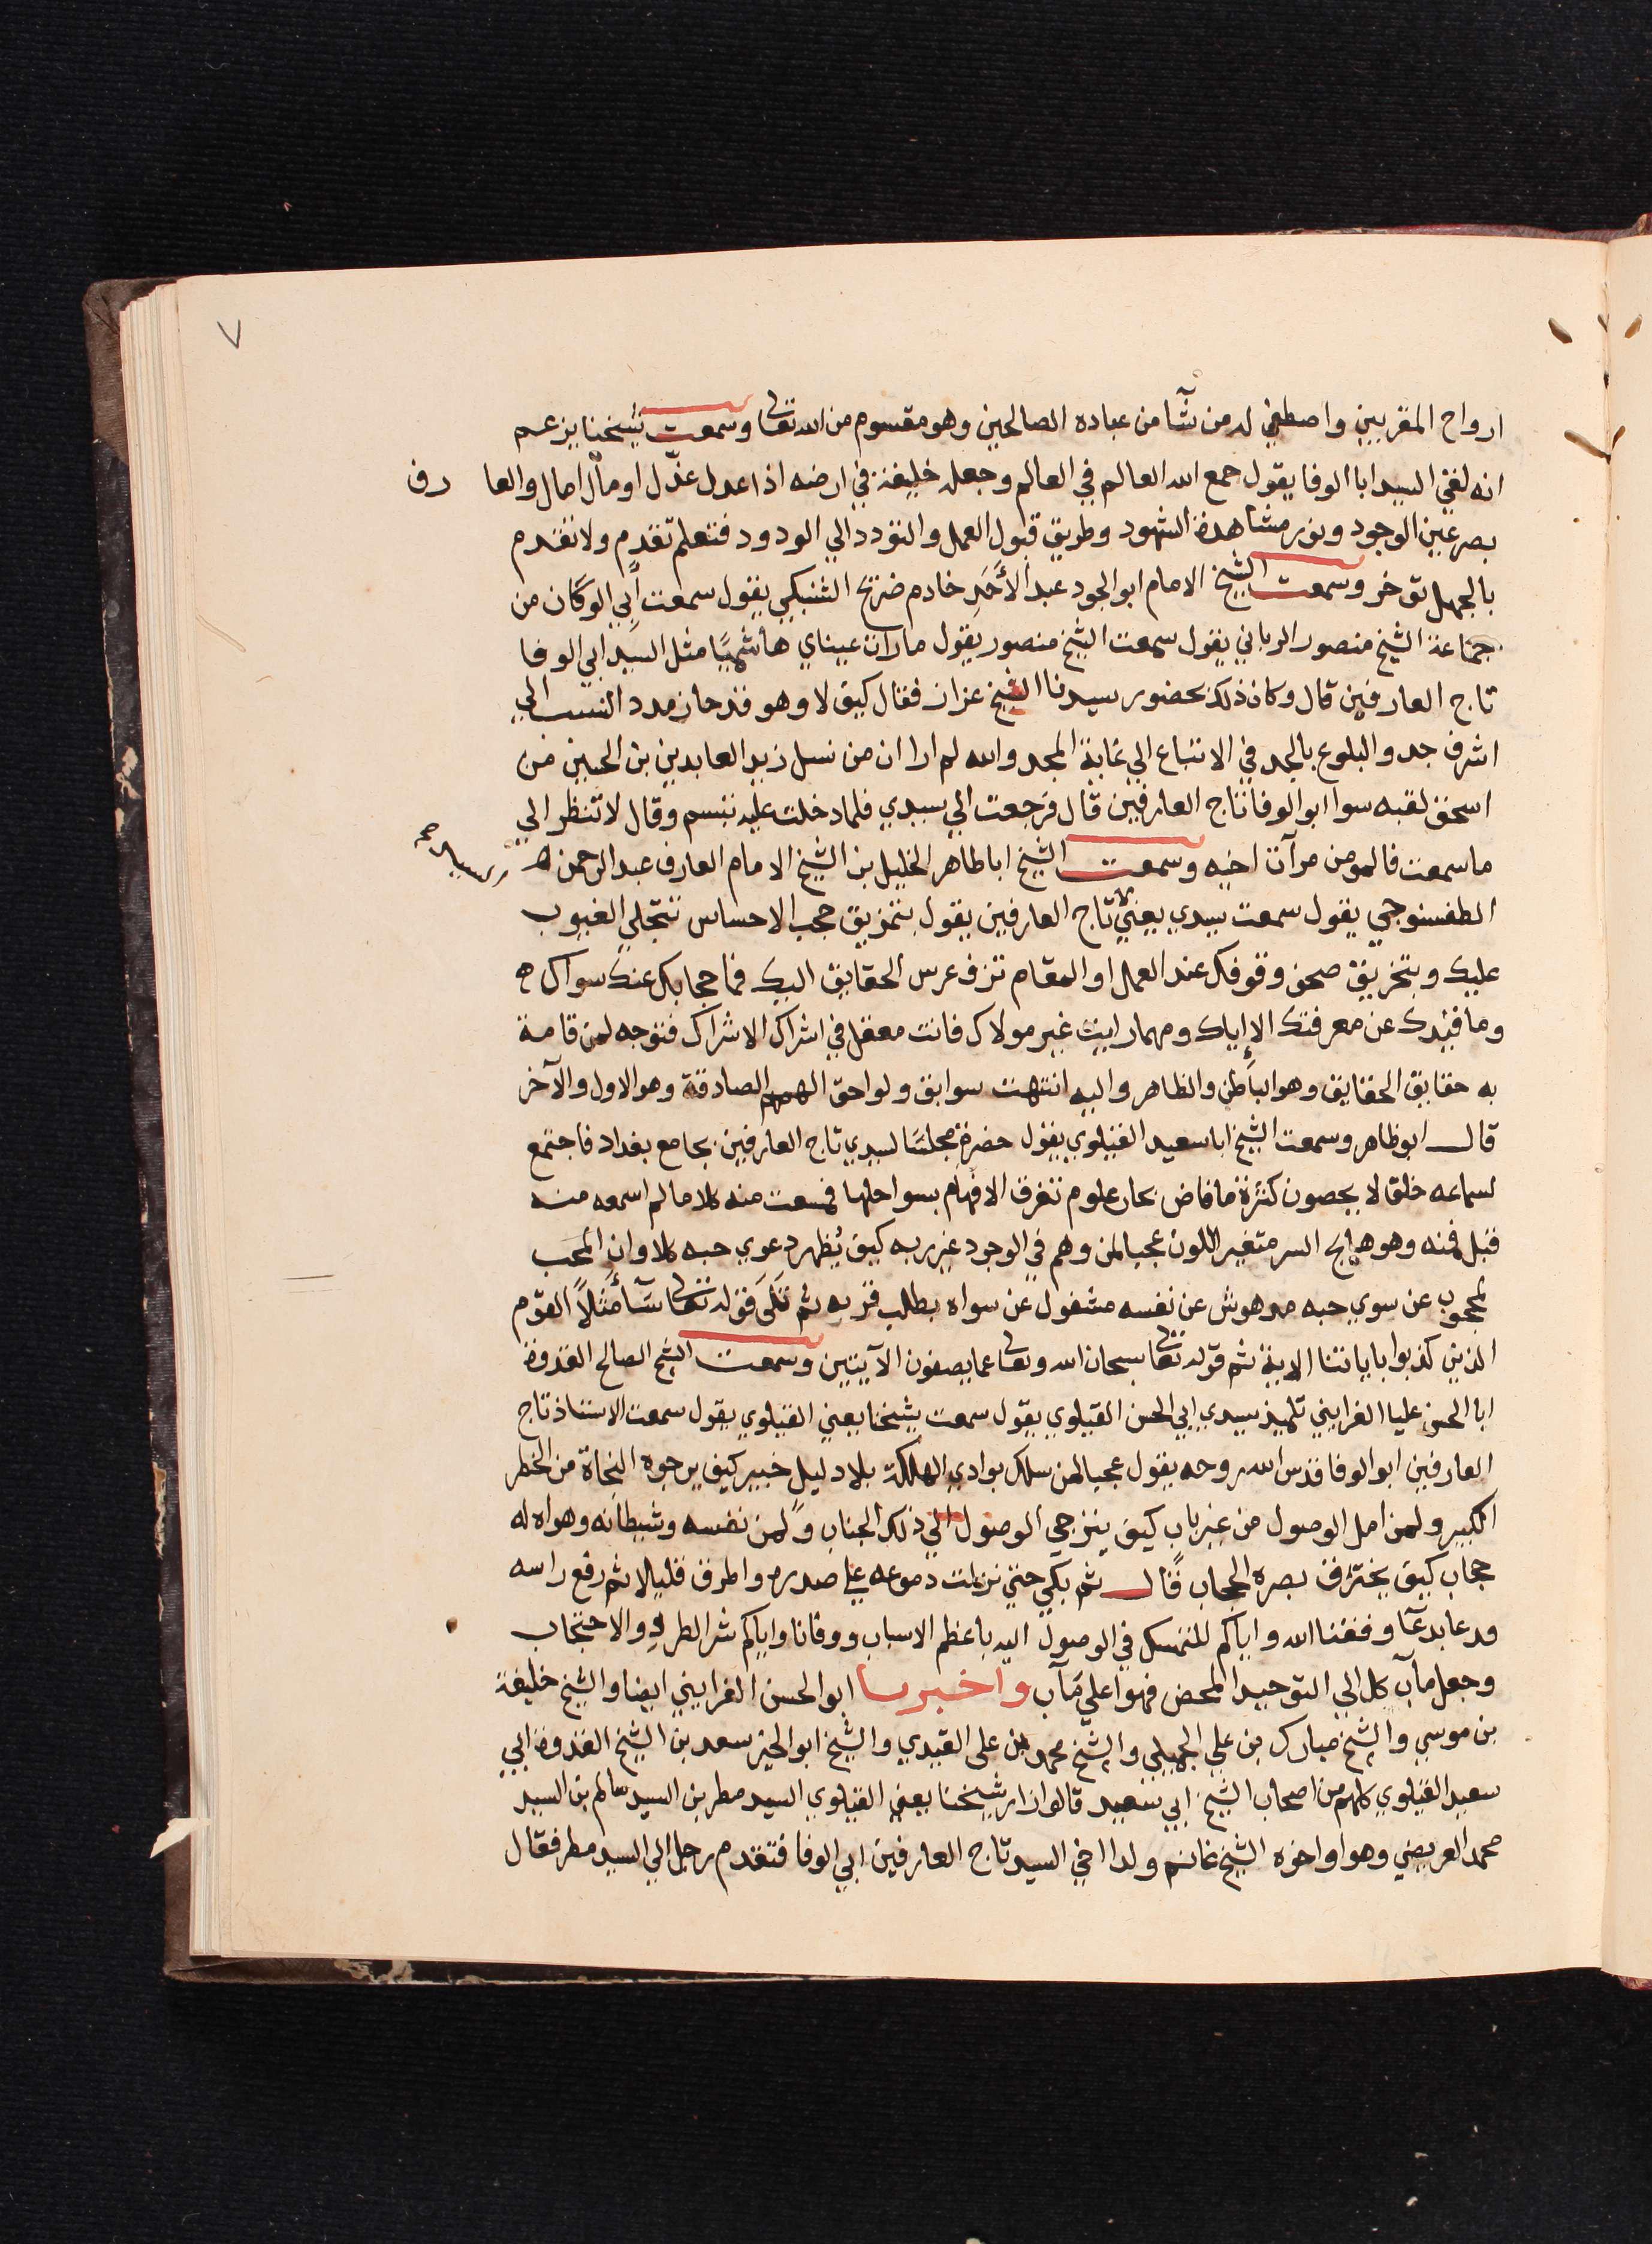 ٧
ارواح المقربين واصطفي له من شآ من عباده الصالحين وهو مقسوم من الله تعالى وسمعت شيخنا يزعم
انه لقي السيد ابا الوفا يقول جمع الله العالم في العالم وجعله خليفة في ارضه اذا عدل عدّل او مال امال والعارف
بصر عين الوجود ونور مشاهدة الشهود وطريق قبول العمل والتودد الي الودود فتعلم تقدم ولا تقدم
بالجهل تؤخر وسمعت الشيخ الامام ابو الجود عبد الأحَدِ خادم ضريح الشنبكي يقول سمعت أبي الو كان من
جماعة الشيخ منصور الرباني يقول سمعت الشيخ منصور يقول ما رات عيناي هاشميًا مثل السيد ابي الوفا
تاج العارفين قال وكان ذلك بحضور سيدنا الشيخ عزاز فقال كيف لا وهو قد حاز مدد النسب الي
اشرف جد والبلوغ بالجد في الاتباع الي غاية المجد والله لم ار ان من نسل زيد العابدين بن الحسين من
اسحق لقبه سوا ابو الوفا تاج العارفين قال فرجعت الي سيدي فلما دخلت عليه تبسم وقال لا تنظر الي
ما سمعت فالمومن مرآت اخيه وسمعت الشيخ ابا طاهر الخليل بن الشيخ الامام العارف عبد الرحمن
الطفسونجي يقول سمعت سيدي يعني تاج العارفين يقول بتمزيق حجب الاحساس تتجلي الغيوب
عليك وبتخريق صحف وقوفك عند العمل او المقام تزف عرس الحقايق اليك فما حجابك عنك سواك
وما قيدك عن معرفتك الا إياك ومهما رايت غير مولاك فانت معقل في اشراك الاشراك فتوجه لمن قامة
به حقايق الحقايق وهو الباطن والظاهر واليه انتهت سوابق ولواحق الهمم الصادقة وهو الاول والآخر
قال ابو طاهر وسمعت الشيخ ابا سعيد القيلوي يقول حضرة مجلسًا لسيدي تاج العارفين بجامع بغداد فاجتمع
لسماعه خلق لا يحصون كثرة ما فاض بحار علوم تغرق الافهام بسواحلها فسمعت منه كلاما لم اسمعه منه
قبل فمنه وهو هايج السر متغير اللون عجبا لمن وهم في الوجود غير ربه كيف يُظهر دعوي حبه كلا وان المحب
لمحجوب عن سوي حبه مدهوش عن نفسه مشغول عن سواه بطلب قربه ثم تَلَى قوله تعالى سَآ مثلاً القوم
الذين كذبوا باياتنا الاية ثم قوله تعالى سبحان الله وتعالى عما يصفون الآيتين وسمعت الشيخ الصالح القدوة
ابا الحسن عليا الغرايني تلميذ سيدي ابي الحسن القيلوي يقول سمعت شيخنا يعني القيلوي يقول سمعت الاستاذ تاج
العارفين ابو الوفا قدس الله روحه يقول عجبا لمن سلك بوادي الهلكة بلا دليل خبير كيف يرجوه النجاة من الخطر
الكبير ولمن امل الوصول من غير باب كيف يترجي الوصول الي ذلك الجناب ولمن نفسه وشيطانه وهواه له
حجاب كيف يخترق بصره الحجاب قال ثم بكي حتي نزلت دموعه على صدره واطرق قليلا ثم رفع راسه
ودعا بدعآ وفقنا الله واياكم للتمسك في الوصول اليه باعظم الاسباب ووقانا واياكم شر الطرد والاحتجاب
وجعل مآب كل الي التوحيد المحض فهو اعلي مَآب واخبرنا ابو الحسن الغرايني ايضا والشيخ خليفة
بن موسي والشيخ مبارك بن علي الجميلي والشيخ محمد بن على القيدي والشيخ ابو الخير سعد بن الشيخ القدوة ابي
سعيد القيلوي كلهم من اصحاب الشيخ ابي سعيد قالوا زار شيخنا يعني القيلوي السيد مطر بن السيد سالم بن السيد
محمد العريضي وهو او اخوه الشيخ غانم ولدا اخي السيد تاج العارفين ابي الوفا فتقدم رجل الي السيد مطر فقال